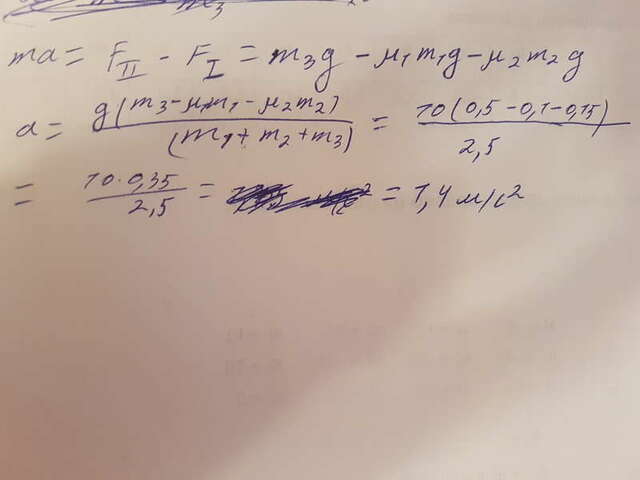 m₃
ma = F_II - F_I = m₃g - μ₁m₁g - μ₂m₂g
a = g(m₃ - μ₁m₁ - μ₂m₂) / (m₁ + m₂ + m₃) = 10(0,5 - 0,1 - 0,15) / 2,5
= 10·0,35 / 2,5 = = 1,4 м/с²